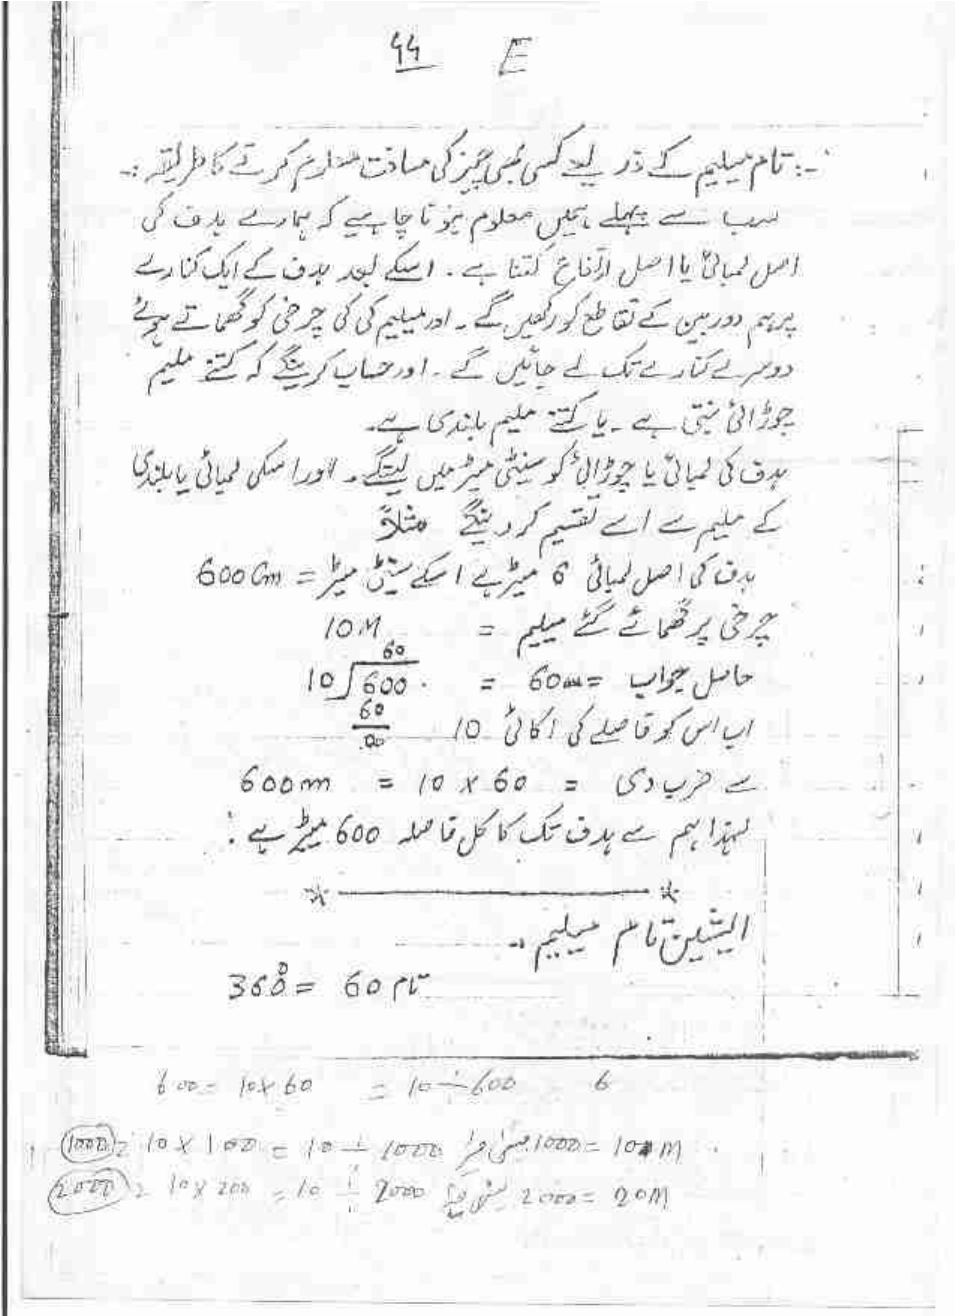 44 E
-: تام میلیم کے ذریعے کسی بھی چیز کی مسافت معلوم کرنے کا طریقہ :-
سب سے پہلے ہمیں معلوم ہونا چاہیے کہ ہمارے ہدف کی
اصل لمبائی یا اصل ارتفاع کتنا ہے ۔ اسکے بعد ہدف کے ایک کنارے
پر ہم دوربین کے تقاطع کو رکھیں گے ۔ اور میلیم کی کی چرخی کو گھماتے ہوئے
دوسرے کنارے تک لے جائیں گے ۔ اور حساب کرینگے کہ کتنے ملیم
چوڑائی بنتی ہے ۔ یا کتنے ملیم بلندی ہے ۔
ہدف کی لمبائی یا چوڑائی کو سینٹی میٹر میں لینگے ۔ اور اسکی لمبائی یا بلندی
کے ملیم سے اسے تقسیم کر دینگے مثلاً
ہدف کی اصل لمبائی 6 میٹر ہے اسکے سینٹی میٹر = 600 Cm
چرخی پر گھمائے گئے میلیم = 10 M
60
حاصل جواب = 60 = 10 √600
اب اس کو فاصلے کی اکائی 10
60
00
سے ضرب دی = 60 x 10 = 600m
لہذا ہم سے ہدف تک کا کل فاصلہ 600 میٹر ہے :
* ———— *
تام میلیم :-
تام 60 = 360°
6 600 ÷ 10 = 60 x 10 = 600
10 M = 1000 1000 ÷ 10 = 100 x 10 = 1000
20 M = 2000 2000 ÷ 10 = 200 x 10 = 2000